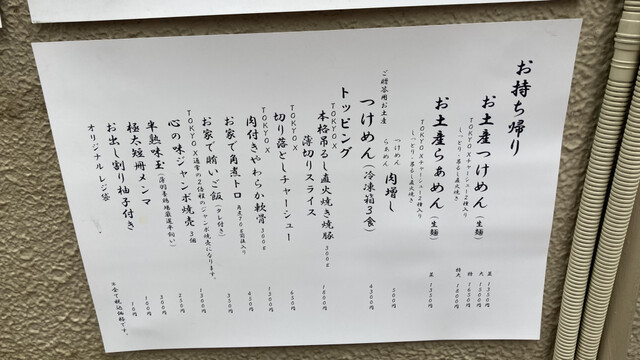 お持ち帰り
お土産つけめん（生麺）
TOKYO Xチャーシュー2種入り
しっとり・吊るし直火焼き
並 1350円
大 1500円
特 1650円
特大 1800円
お土産らぁめん（生麺）
TOKYO Xチャーシュー2種入り
しっとり・吊るし直火焼き
並 1250円
つけめん
らぁめん
肉増し
500円
ご贈答用お土産
つけめん（冷凍箱3食）
4300円
トッピング
TOKYO X
本格吊るし直火焼き焼豚 300g
1800円
薄切りスライス
TOKYO X
切り落としチャーシュー
650円
TOKYO X
肉付きやわらか軟骨 300g
1300円
お家で角煮トロ 角煮70g前後入り
450円
お家で賄いご飯（タレ付き）
350円
TOKYO X通常の2倍程のジャンボ焼売になります。
心の味ジャンボ焼売 3個
1300円
半熟味玉
250円
極太短冊メンマ
300円
お出し割り柚子付き
100円
オリジナルレジ袋
10円
※全て税込価格です。